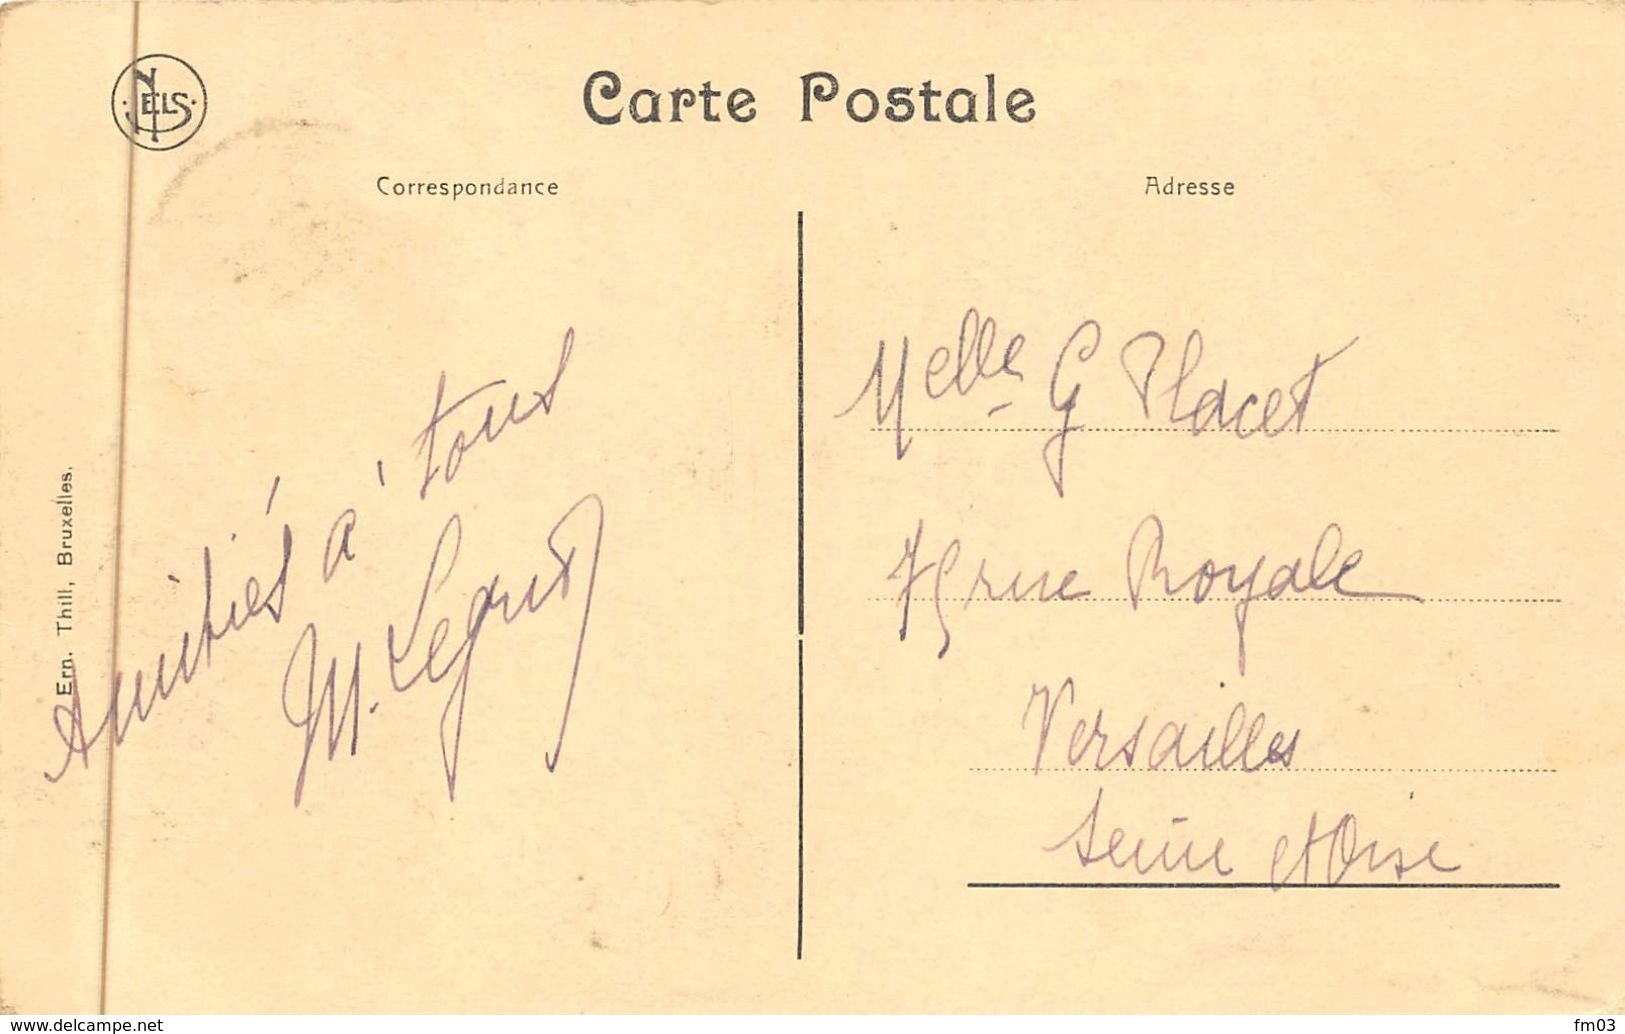 NELS
Carte Postale
Correspondance
Adresse
Amitiés à tous
Melle G Placet
rue Royale
Versailles
Seine et Oise
Ern. Thill, Bruxelles.
www.delcampe.net
fm03